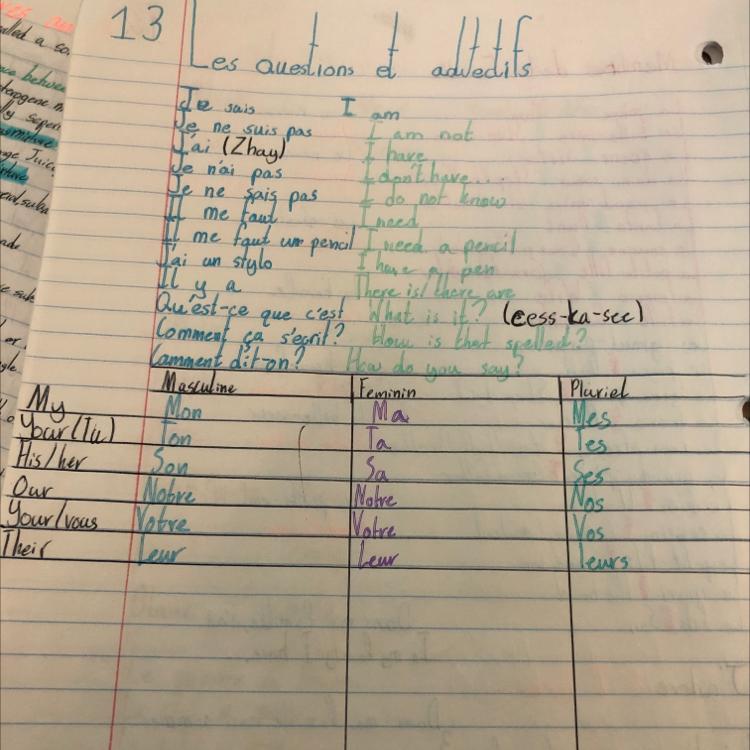 13
Les questions et advetifs
Je sais I am
Je ne suis pas I am not
J'ai (Zhay) I have
Je n'ai pas I don't have...
Je ne sais pas I do not know
Il me faut I need
Il me faut un pencil I need a pencil
J'ai un stylo I have a pen
Il y a There is/there are
Qu'est-ce que c'est What is it? (cess-ka-sec)
Comment ça s'ecrit? How is that spelled?
Comment dit-on? How do you say?
Masculine Feminin Pluriel
My Mon Ma Mes
Your (Tu) Ton Ta Tes
His/her Son Sa Ses
Our Notre Notre Nos
Your/vous Votre Votre Vos
Their Leur Leur leurs